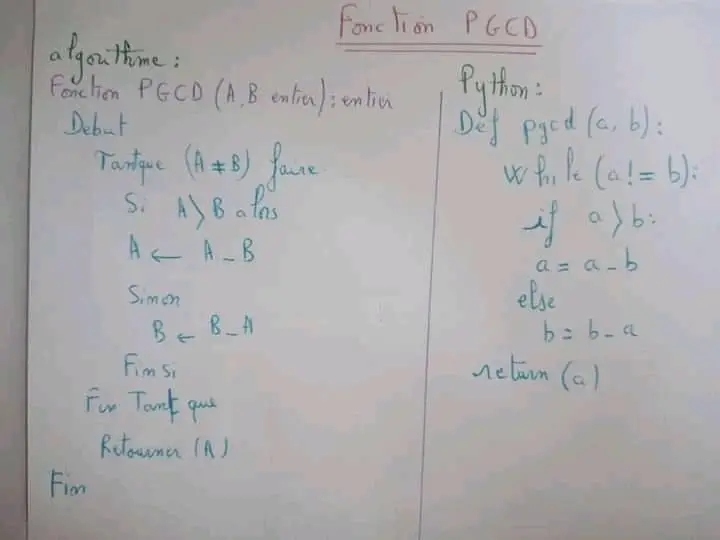 Fonction PGCD
algorithme:
Fonction PGCD (A, B entier): entier
Debut
Tantque (A ≠ B) faire
Si A > B alors
A ← A - B
Sinon
B ← B - A
Fin Si
Fin Tant que
Retourner (A)
Fin
Python:
Def pgcd (a, b):
While (a != b):
if a > b:
a = a - b
else
b = b - a
return (a)